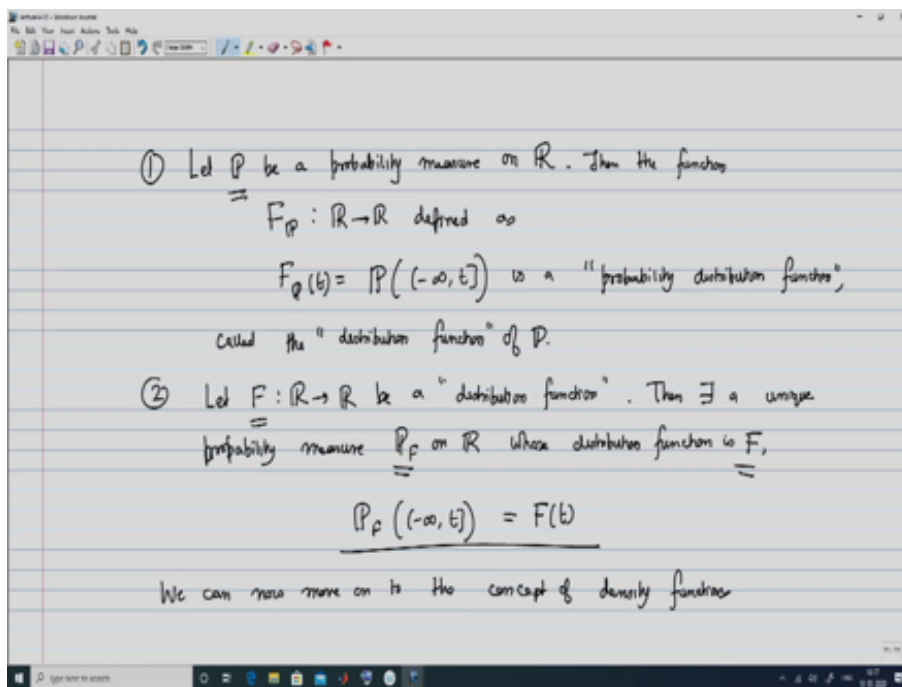 File Edit View Insert Actions Tools Help
① Let ℙ be a probability measure on ℝ. Then the function
F_ℙ : ℝ → ℝ defined as
F_ℙ(t) = ℙ((-∞, t]) is a "probability distribution function",
called the "distribution function" of ℙ.
② Let F : ℝ → ℝ be a "distribution function". Then ∃ a unique
probability measure ℙ_F on ℝ whose distribution function is F,
ℙ_F((-∞, t]) = F(t)
We can now move on to the concept of density function
Type here to search